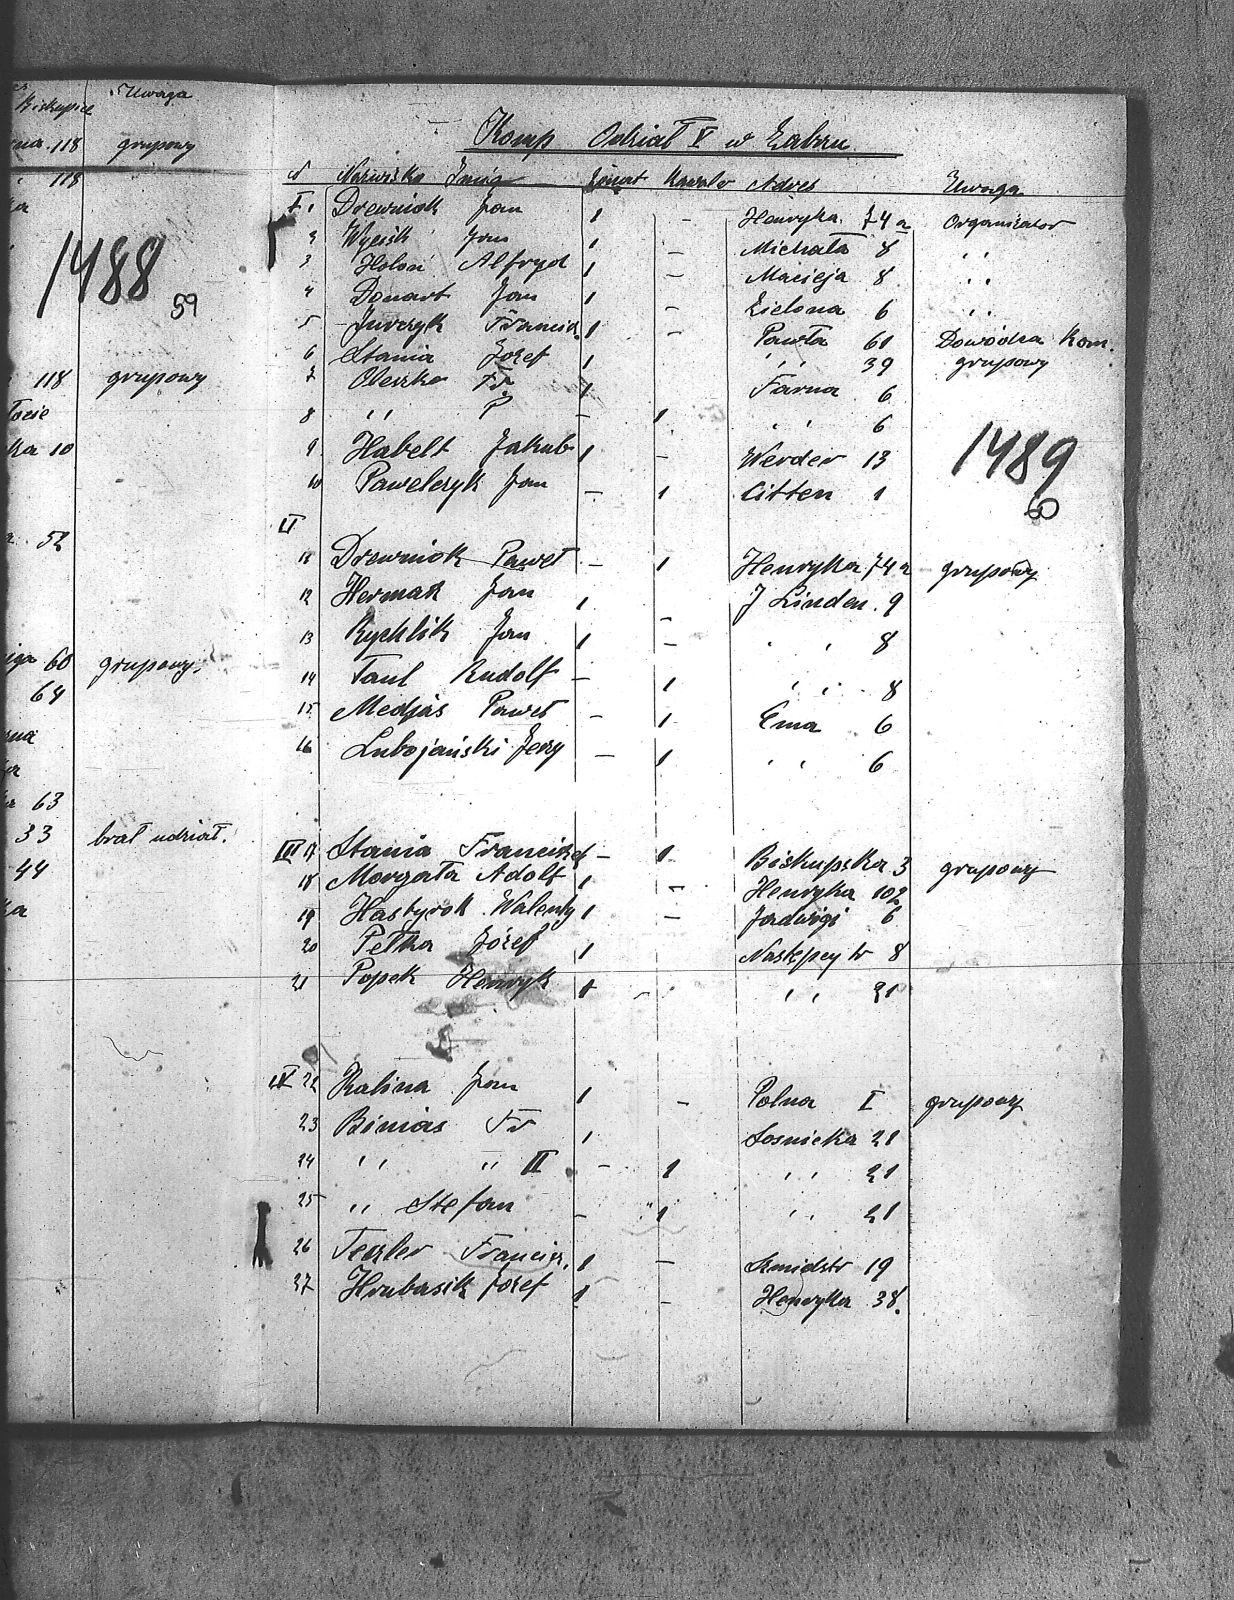 Biskupice Uwaga
118 grupowy
118
1488
59
118 grupowy
10
52
60 grupowy.
64
63
33 brał udział.
44
Komp Odział V w Zabrzu
№ Nazwisko Imię Żonat Kawaler Adres Uwaga
I 1 Drewniok Jan 1 - Henryka 74a Organizator
2 Wycisk Jan 1 - Michała 8 ,, 
3 Holoń Alfryd 1 - Macieja 8 ,,
4 Donart Jan 1 - Zielona 6 ,,
5 Jurczyk Francisz. 1 - Pawła 61 Dowódca Kom.
6 Stania Józef 1 ,, 39 grupowy
7 Oleszko Fr. 1 Farna 6
8 ,, P - 1 ,, 6
9 Habelt Jakub 1 - Werder 13
10 Pawelczyk Jan - 1 Citten 1
1489
60
II
11 Drewniok Paweł - 1 Henryka 74a grupowy
12 Hermak Jan 1 - J Linden. 9
13 Rychlik Jan 1 - ,, 8
14 Taul Rudolf - 1 ,, 8
15 Medjas Paweł - 1 Ema 6
16 Lubojański Jerzy - 1 ,, 6
III 17 Stania Franciszek - 1 Biskupska 3 grupowy
18 Morgała Adolf 1 - Henryka 102
19 Hastyrok Walenty 1 - Jadwigi 6
20 Pełka Józef 1 8
21 Popek Henryk 1 - ,, 21
IV 22 Kalina Jan 1 - Polna I grupowy
23 Binias Fr 1 Sosnicka 21
24 ,, ,, II - 1 ,, 21
25 ,, Stefan - 1 ,, 21
26 Tezler Francisz. 1 - Smidstr 19
27 Hrubasik Józef 1 - Henryka 38.